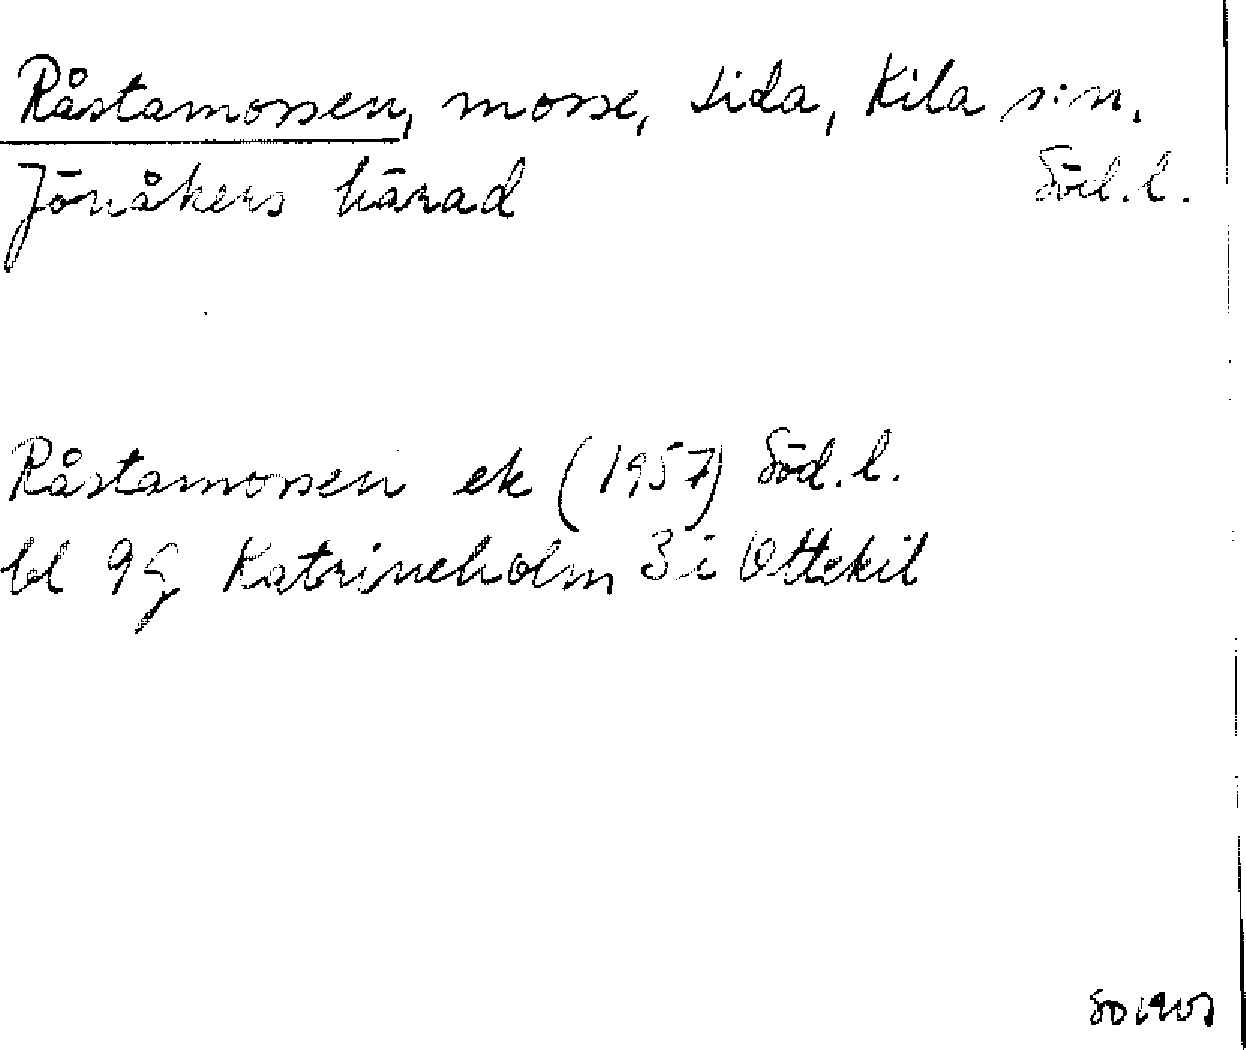 Råstamossen, mosse, Lida, Kila s:n.
Jönåkers härad Söd.l.
Råstamossen ek (1957) Söd.l.
bl 9G Katrineholm 3i Ottekil